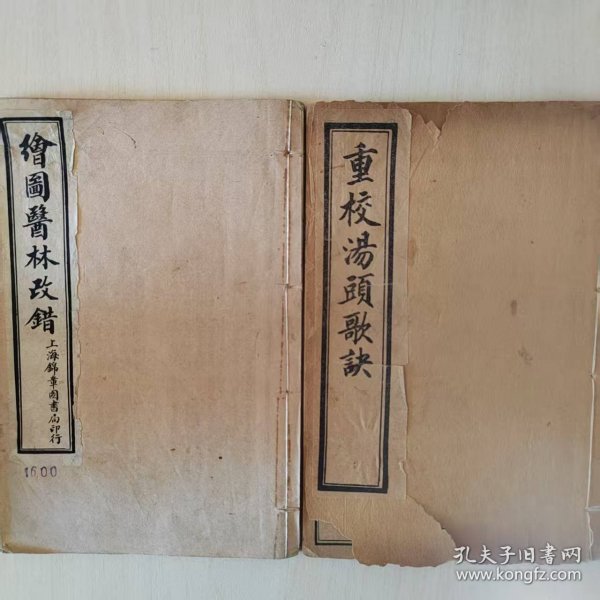 繪圖醫林改錯
上海錦章圖書局印行
1600
重校湯頭歌訣
孔夫子旧书网
www.kongfz.com